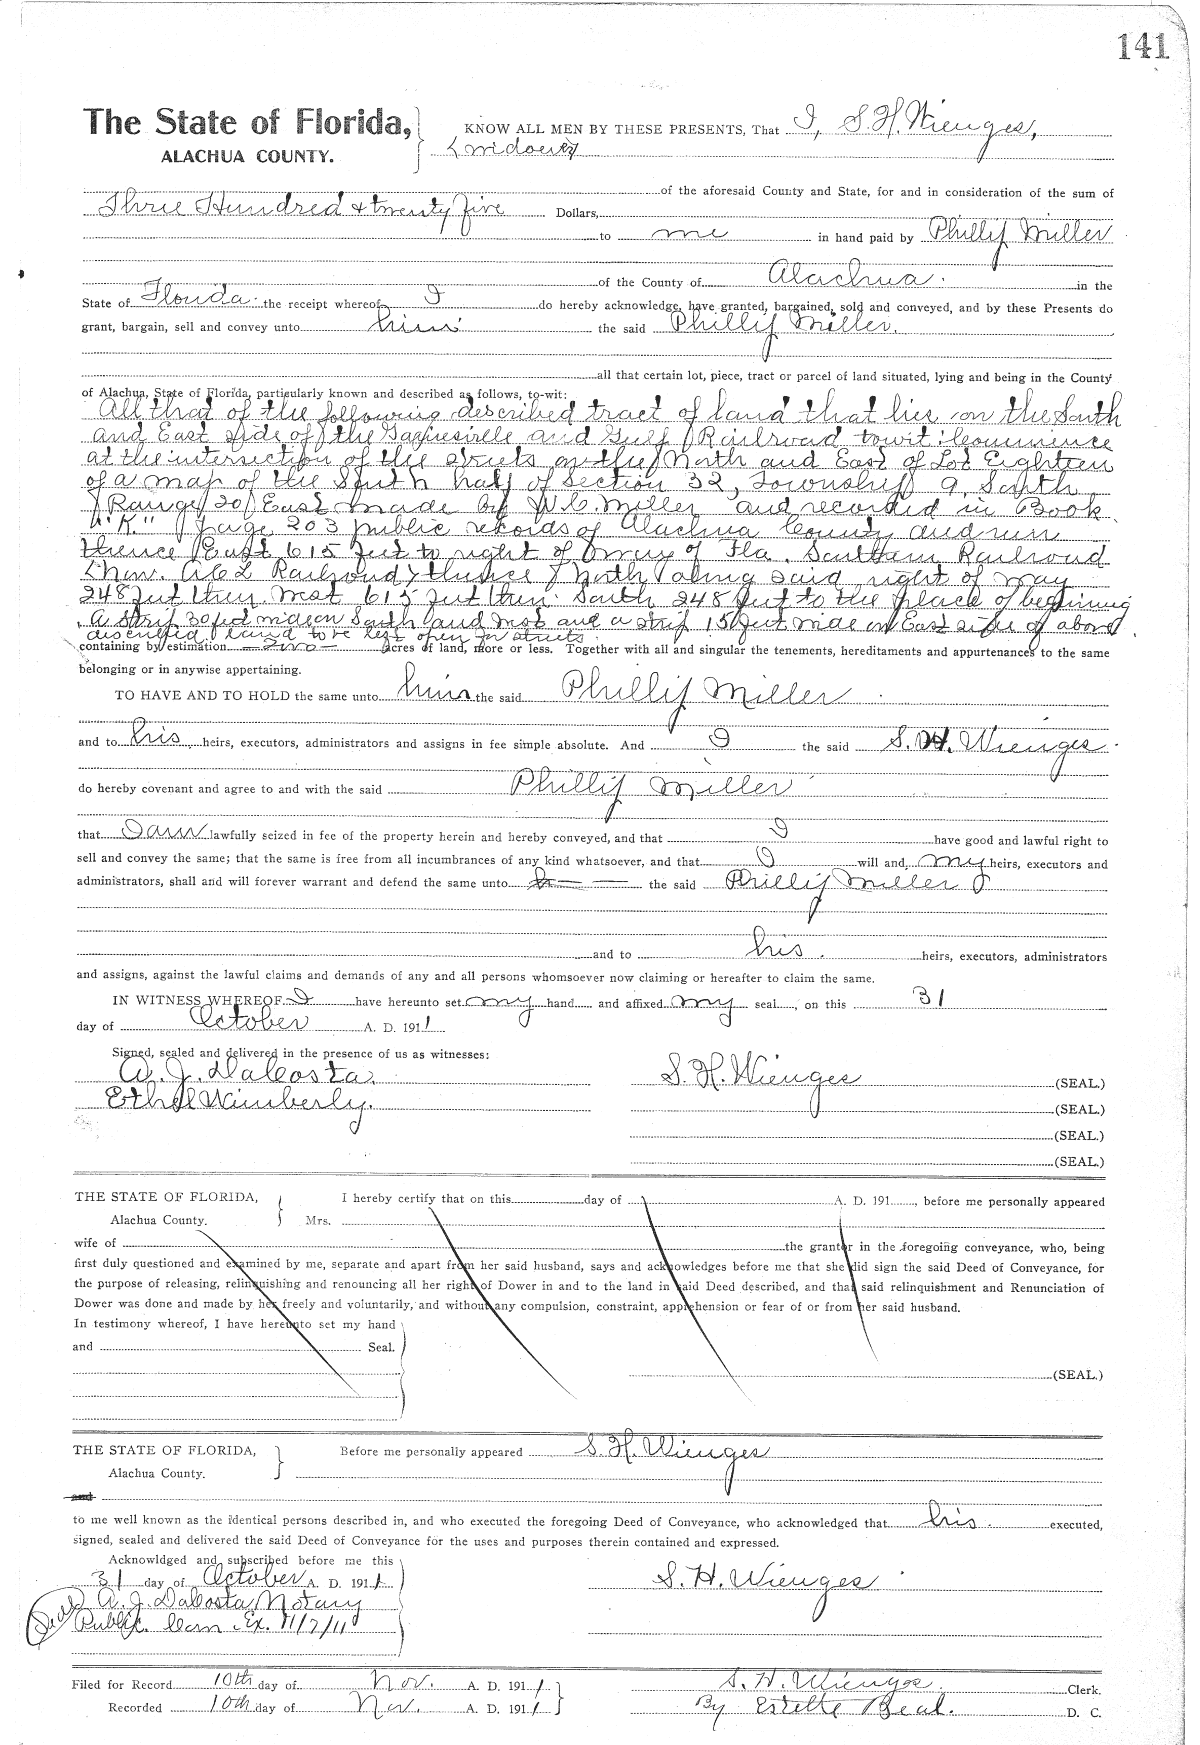 141
The State of Florida,
ALACHUA COUNTY.
KNOW ALL MEN BY THESE PRESENTS, That I, S. H. Wienges,
(widower)
of the aforesaid County and State, for and in consideration of the sum of
Three Hundred & twenty five Dollars,
to me in hand paid by Phillip Miller
of the County of Alachua. in the
State of Florida. the receipt whereof I do hereby acknowledge, have granted, bargained, sold and conveyed, and by these Presents do
grant, bargain, sell and convey unto him the said Phillip Miller.
all that certain lot, piece, tract or parcel of land situated, lying and being in the County
of Alachua, State of Florida, particularly known and described as follows, to-wit:
All that of the following described tract of land that lies on the South
and East side of the Gainesville and Gulf Railroad towit: Commence
at the intersection of the streets on the North and East of Lot Eighteen
of a map of the South half of Section 32, Township 9, South
Range 20 East made by W. C. Miller and recorded in Book
"K" page 203 public records of Alachua County and run
thence East 615 feet to right of way of Fla. Southern Railroad
(Now. A C L Railroad) thence North along said right of way
248 feet then West 615 feet then South 248 feet to the place of beginning
. A strip 30 feet wide on South and West and a strip 15 feet wide on East side of above
described land to be left open for streets
containing by estimation —two— acres of land, more or less. Together with all and singular the tenements, hereditaments and appurtenances to the same
belonging or in anywise appertaining.
TO HAVE AND TO HOLD the same unto him the said Phillip Miller
and to his heirs, executors, administrators and assigns in fee simple absolute. And I the said S. H. Wienges.
do hereby covenant and agree to and with the said Phillip Miller
that I am lawfully seized in fee of the property herein and hereby conveyed, and that I have good and lawful right to
sell and convey the same; that the same is free from all incumbrances of any kind whatsoever, and that I will and my heirs, executors and
administrators, shall and will forever warrant and defend the same unto the said Phillip Miller
and to his. heirs, executors, administrators
and assigns, against the lawful claims and demands of any and all persons whomsoever now claiming or hereafter to claim the same.
IN WITNESS WHEREOF I have hereunto set my hand and affixed my seal, on this 31
day of October A. D. 1911
Signed, sealed and delivered in the presence of us as witnesses:
A. J. DaCosta. S. H. Wienges (SEAL.)
Ethel Wimberly. (SEAL.)
(SEAL.)
(SEAL.)
THE STATE OF FLORIDA, I hereby certify that on this day of A. D. 191 , before me personally appeared
Alachua County. Mrs.
wife of the grantor in the foregoing conveyance, who, being
first duly questioned and examined by me, separate and apart from her said husband, says and acknowledges before me that she did sign the said Deed of Conveyance, for
the purpose of releasing, relinquishing and renouncing all her right of Dower in and to the land in said Deed described, and that said relinquishment and Renunciation of
Dower was done and made by her freely and voluntarily, and without any compulsion, constraint, apprehension or fear of or from her said husband.
In testimony whereof, I have hereunto set my hand
and Seal.
(SEAL.)
THE STATE OF FLORIDA, Before me personally appeared S. H. Wienges
Alachua County.
and
to me well known as the identical persons described in, and who executed the foregoing Deed of Conveyance, who acknowledged that his. executed,
signed, sealed and delivered the said Deed of Conveyance for the uses and purposes therein contained and expressed.
Acknowldged and subscribed before me this
31 day of October A. D. 1911 S. H. Wienges
Seal A. J. DaCosta Notary
Public. Com. Ex. 11/7/11
Filed for Record 10th day of Nov. A. D. 1911 S. H. Wienges. Clerk.
Recorded 10th day of Nov. A. D. 1911 By Estelle Beal. D. C.